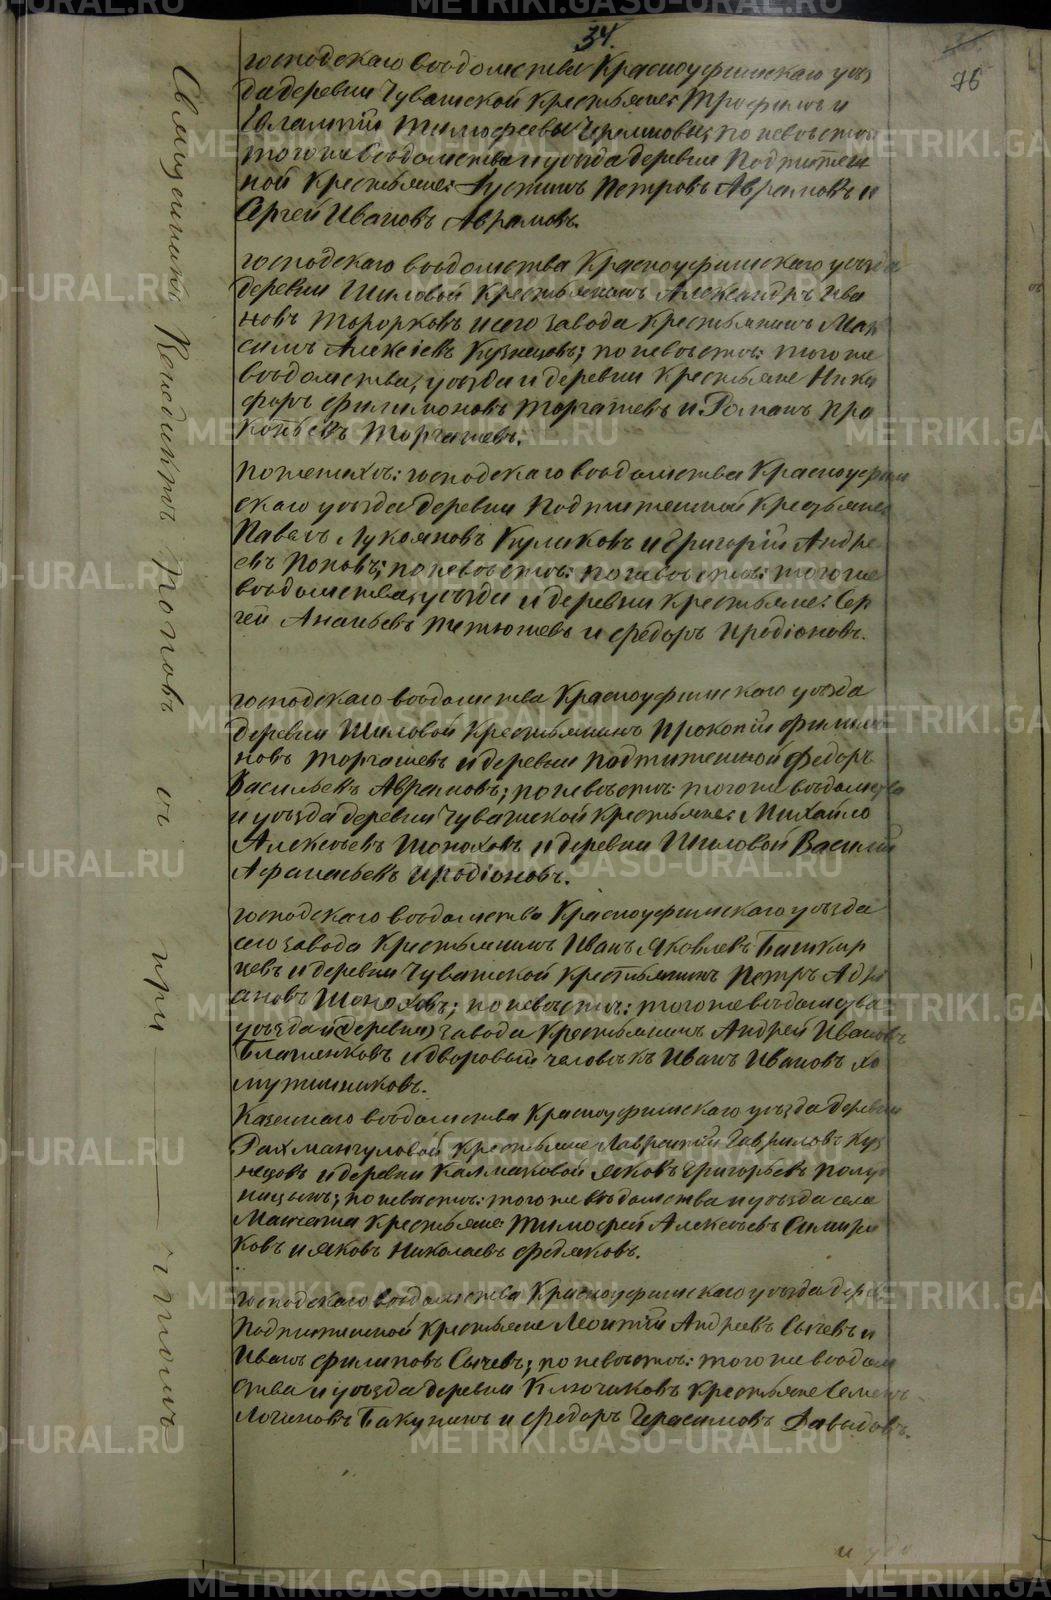 34.
76
Священникъ Констинтинъ Поповъ съ при
господскаго вѣдомства Красноуфимскаго уѣз
да деревни Чувашской Крестьяне: Трофимъ и
Евлампій Тимофеевы по невѣстѣ:
того же Вѣдомства и уѣзда деревни Подпитен
ной Крестьяне: Устинъ Петровъ Аврамовъ и
Сергей Ивановъ Аврамовъ.
господскаго вѣдомства Красноуфимскаго уѣзда
деревни Шиловой Крестьянинъ Александръ Ива
новъ Топорковъ и сего завода Крестьянинъ Мак
симъ Алексіевъ Кузнецовъ; по невѣстѣ: того же
вѣдомства, уѣзда и деревни Крестьяне Ника
форъ Филимоновъ Торгашевъ и Романъ Про
копьевъ Торгашевъ.
по женихѣ: господскаго вѣдомства Красноуфим
скаго уѣзда деревни Подпитенной Крестьяне
Павелъ Лукояновъ Куликовъ и Григорій Андре
евъ Поповъ; по невѣстѣ: по невѣстѣ: того же
вѣдомства, уѣзда и деревни Крестьяне: Сер
гей Ананьевъ Тетюшевъ и Федоръ Иродіоновъ.
господскаго вѣдомства Красноуфимскаго уѣзда
деревни Шиловой Крестьянинъ Прокопій Филимо
новъ Торгашевъ и деревни Подпитенной Федоръ
Васильевъ Аврамовъ; по невѣстѣ: того же вѣдомства
и уѣзда деревни Чувашской Крестьяне: Михайло
Алексѣевъ Шоноховъ и деревни Шиловой Василій
Афанасьевъ Иродіоновъ.
господскаго вѣдомства Красноуфимскаго уѣзда
сего завода Крестьянинъ Иванъ Яковлевъ Башкир
цевъ и деревни Чувашской Крестьянинъ Петръ Адрі
ановъ Шоноховъ; по невѣстѣ: того же вѣдомства
уѣзда и (деревни) завода Крестьянинъ Андрей Ивановъ
Блатенковъ и дворовый человѣкъ Иванъ Ивановъ Хо
мутинниковъ.
Казеннаго вѣдомства Красноуфимскаго уѣзда деревни
Рахмангуловой Крестьяне Лаврентій Гавриловъ Куз
нецовъ и деревни Калмаковой Яковъ Григорьевъ Полу
ницынъ; по невѣстѣ: того же вѣдомства и уѣзда села
Манчажа Крестьяне: Тимофей Алексѣевъ
ковъ и Яковъ Николаевъ Федяковъ.
господскаго вѣдомства Красноуфимскаго уѣзда дере
Подпитенной Крестьяне Леонтій Андреевъ Сычевъ и
Иванъ Филиповъ Сычевъ; по невѣстѣ: того же вѣдом
ства и уѣзда деревни Ключиковъ Крестьяне Семенъ
Логиновъ Бакунинъ и Федоръ Герасимовъ Давыдовъ.